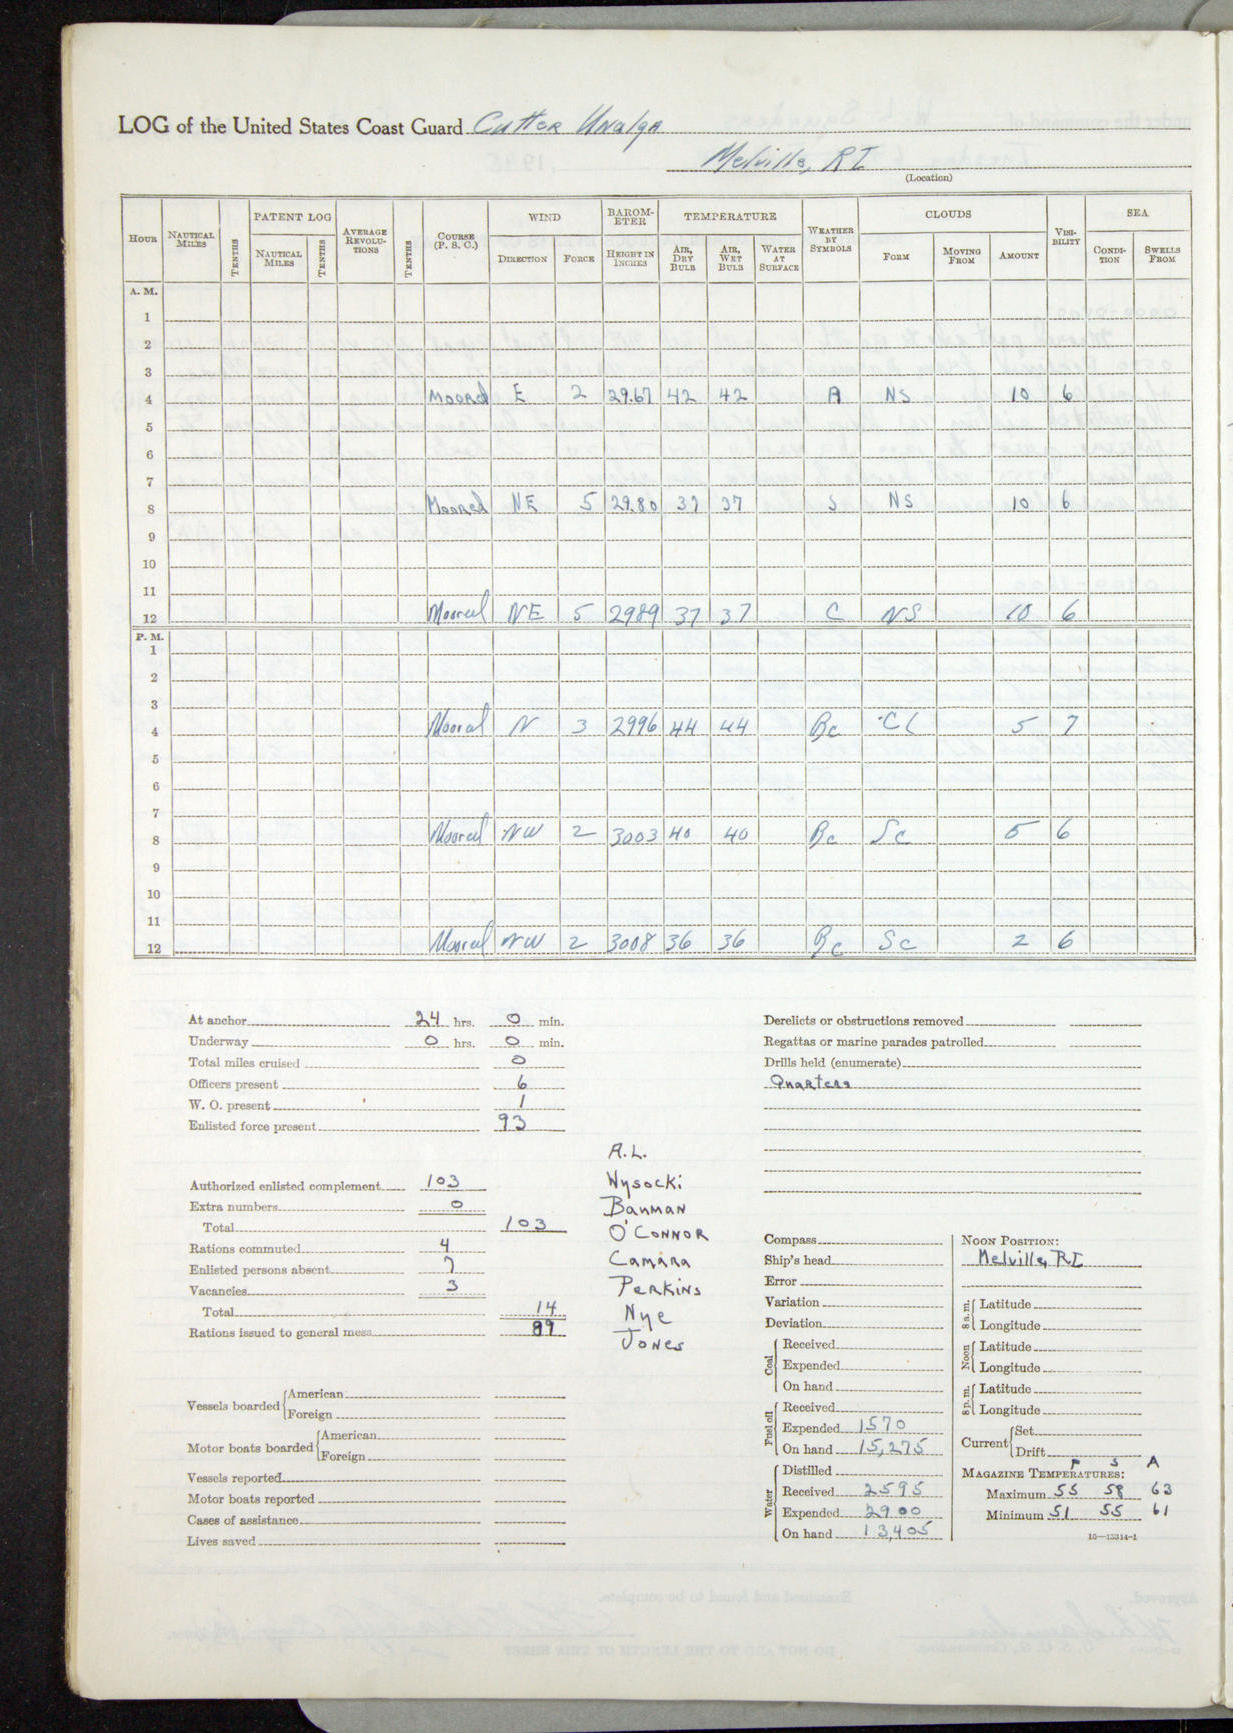 LOG of the United States Coast Guard Cutter Unalga
Melville, RI
(Location)
HOUR NAUTICAL MILES TENTHS PATENT LOG NAUTICAL MILES TENTHS AVERAGE REVOLU-TIONS TENTHS COURSE (P. S. C.) WIND DIRECTION FORCE BAROM-ETER HEIGHT IN INCHES TEMPERATURE AIR, DRY BULB AIR, WET BULB WATER AT SURFACE WEATHER BY SYMBOLS CLOUDS FORM MOVING FROM AMOUNT VISI-BILITY SEA CONDI-TION SWELLS FROM
A. M.
1
2
3
4 Moored E 2 29.67 42 42 NS 10 6
5
6
7
8 Moored NE 5 29.80 37 37 S NS 10 6
9
10
11
12 Moored NE 5 2989 37 37 C NS 10 6
P. M.
1
2
3
4 Moored N 3 2996 44 44 Bc 5 7
5
6
7
8 Moored NW 2 3003 40 40 Bc Sc 5 6
9
10
11
12 Moored NW 2 3008 36 36 Bc Sc 2 6
At anchor 24 hrs. 0 min.
Underway 0 hrs. 0 min.
Total miles cruised 0
Officers present 6
W. O. present 1
Enlisted force present 93
Authorized enlisted complement 103
Extra numbers 0
Total 103
Rations commuted 4
Enlisted persons absent 7
Vacancies 3
Total 14
Rations issued to general mess 89
A.L.
Wysocki
Banman
O'Connor
Camara
Perkins
Nye
Jones
Vessels boarded American
Foreign
Motor boats boarded American
Foreign
Vessels reported
Motor boats reported
Cases of assistance
Lives saved
Derelicts or obstructions removed
Regattas or marine parades patrolled
Drills held (enumerate)
Quarters
Compass
Ship's head
Error
Variation
Deviation
Coal Received
Expended
On hand
Fuel oil Received
Expended 1570
On hand 15,275
Water Distilled
Received 2595
Expended 2900
On hand 13,405
NOON POSITION:
Melville, RI
8 a.m. Latitude
Longitude
Noon Latitude
Longitude
8 p.m. Latitude
Longitude
Current Set
Drift
F S A
MAGAZINE TEMPERATURES:
Maximum 55 58 63
Minimum 51 55 61
16—13314-1